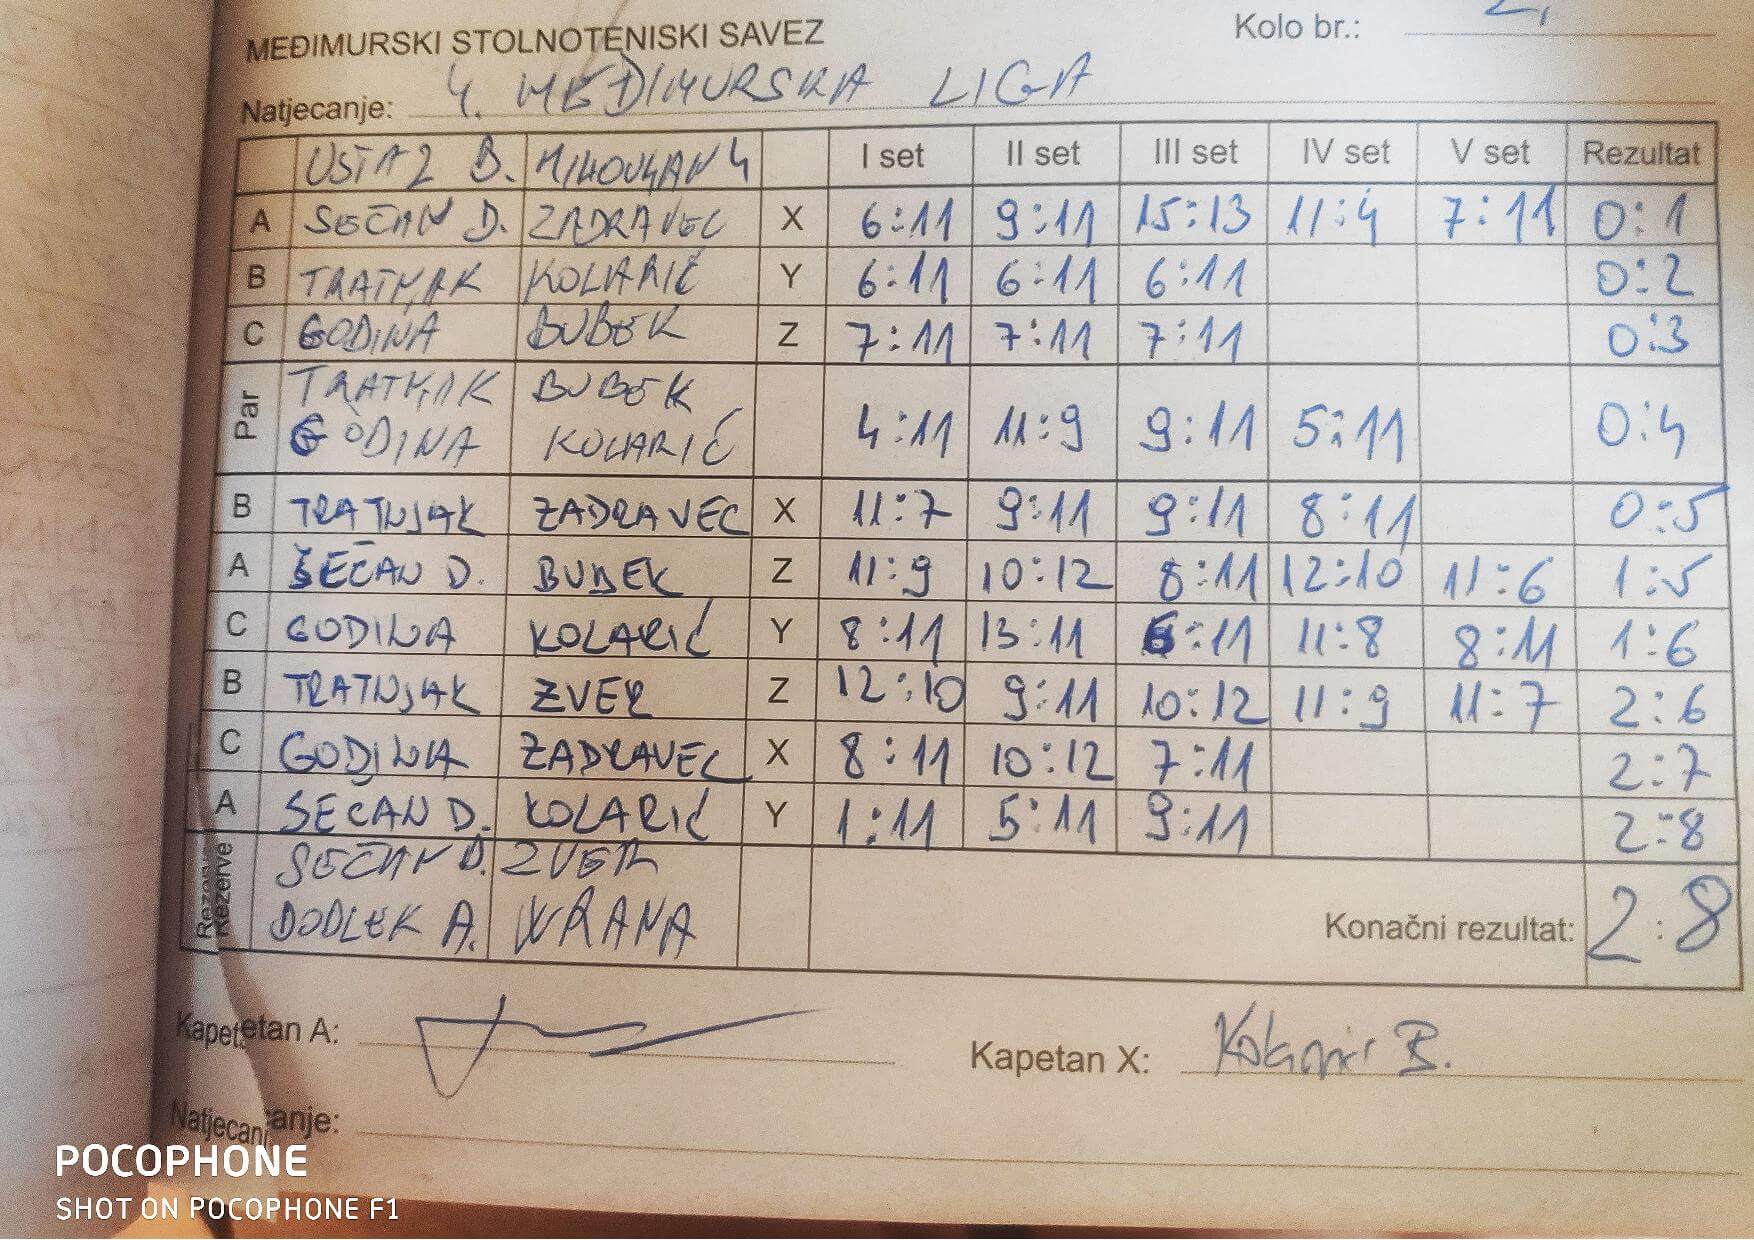 MEĐIMURSKI STOLNOTENISKI SAVEZ
Kolo br.: 2,
Natjecanje: 4. MEĐIMURSKA LIGA
B. I set II set III set IV set V set Rezultat
A SEČAN D. ZADRAVEC X 6:11 9:11 15:13 11:4 7:11 0:1
B TRATNJAK KOLARIĆ Y 6:11 6:11 6:11 0:2
C GODINA BUBEK Z 7:11 7:11 7:11 0:3
Par TRATNJAK BUBEK
GODINA KOLARIĆ 4:11 11:9 9:11 5:11 0:4
B TRATNJAK ZADRAVEC X 11:7 9:11 9:11 8:11 0:5
A SEČAN D. BUBEK Z 11:9 10:12 8:11 12:10 11:6 1:5
C GODINA KOLARIĆ Y 8:11 13:11 6:11 11:8 8:11 1:6
B TRATNJAK ZVER Z 12:10 9:11 10:12 11:9 11:7 2:6
C GODINA ZADRAVEC X 8:11 10:12 7:11 2:7
A SEČAN D. KOLARIĆ Y 1:11 5:11 9:11 2:8
Rezerve SEČAN D. ZVER
DODLEK A. WRANA Konačni rezultat: 2:8
Kapetan A:
Kapetan X: B.
Natjecanje:
POCOPHONE
SHOT ON POCOPHONE F1